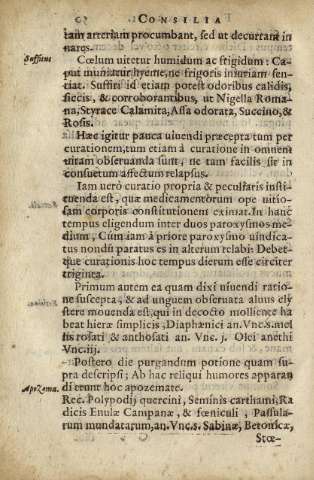 CONSILIA
tam arteriam procumbant, sed ut decurtant in
nares.
Suffitus
Cœlum uitetur humidum ac frigidum: Ca-
put muniatur hyeme, ne frigoris iniuriam sen-
tiat. Suffiri id etiam potest odoribus calidis,
siccis, & corroborantibus, ut Nigella Roma-
na, Styrace Calamita, Assa odorata, Succino, &
Rosis.
Hæc igitur pauca uiuendi præcepta tum per
curationem, tum etiam à curatione in omnem
uitam obseruanda sunt, ne tam facilis sit in
consuetum affectum relapsus.
Iam uerò curatio propria & peculiaris insti-
tuenda est, quæ medicamentorum ope uitio-
sam corporis constitutionem eximat. In hanc
tempus eligendum inter duos paroxysmos me-
dium, Cùm iam à priore paroxysmo uindica-
tus nondū paratus es in alterum relabi: Debet-
que curationis hoc tempus dierum esse circiter
triginta.
Primum autem ea quam dixi uiuendi ratio-
ne suscepta, & ad unguem obseruata aluus cly-
stere mouenda est, qui in decocto molliente ha-
beat hieræ simplicis, Diaphænici an. Vnc. s. mel-
lis rosati & anthosati an. Vnc. j. Olei anethi
Vnc. iij.
Postero die purgandum potione quam su-
pra descripsi; Ab hac reliqui humores apparan
di erunt hoc apozemate.
Apozema.
Rec. Polypodij quercini, Seminis carthami, Ra
dicis Enulæ Campanæ, & fœniculi, Passula-
rum mundatarum, an. Vnc. s. Sabinæ, Betonicæ,
Stœ-